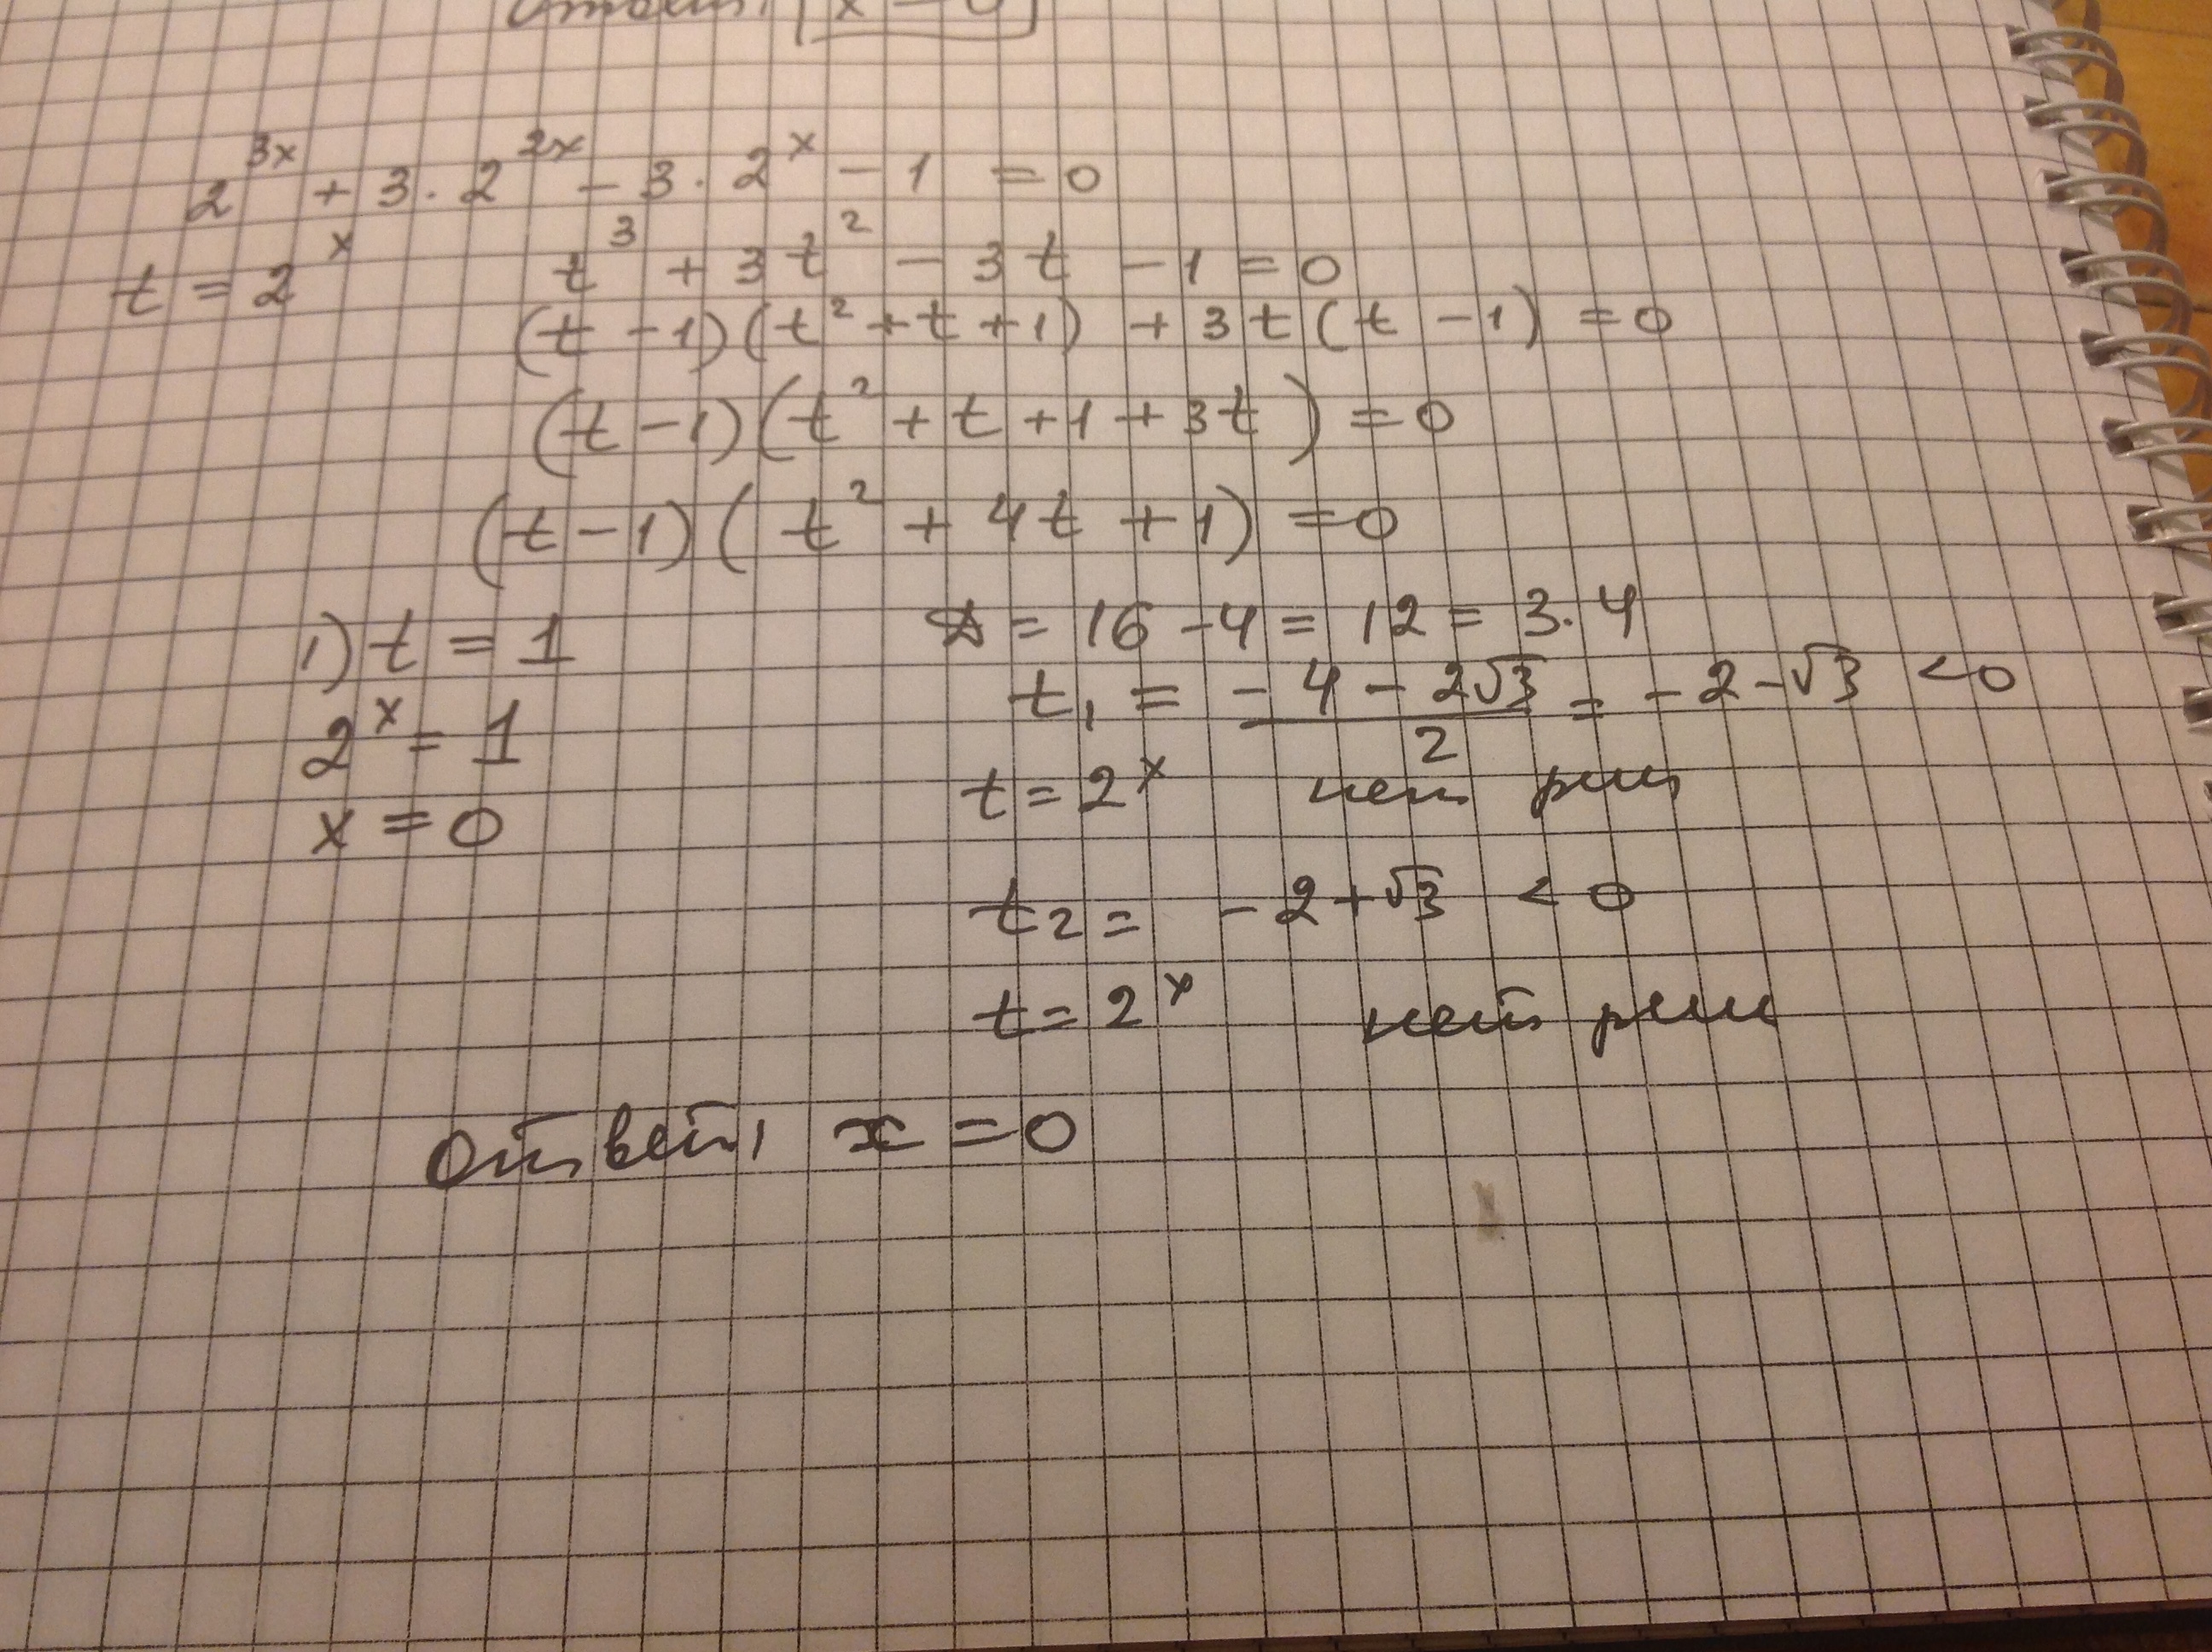 Ответ, x = 0
2^{3x} + 3 · 2^{2x} - 3 · 2^x - 1 = 0
t = 2^x t^3 + 3t^2 - 3t - 1 = 0
(t - 1)(t^2 + t + 1) + 3t(t - 1) = 0
(t - 1)(t^2 + t + 1 + 3t) = 0
(t - 1)(t^2 + 4t + 1) = 0
1) t = 1
2^x = 1
x = 0
D = 16 - 4 = 12 = 3 · 4
t_1 = \frac{-4 - 2√3}{2} = -2 - √3 < 0
t = 2^x нет реш
t_2 = -2 + √3 < 0
t = 2^x нет реш
Ответ, x = 0